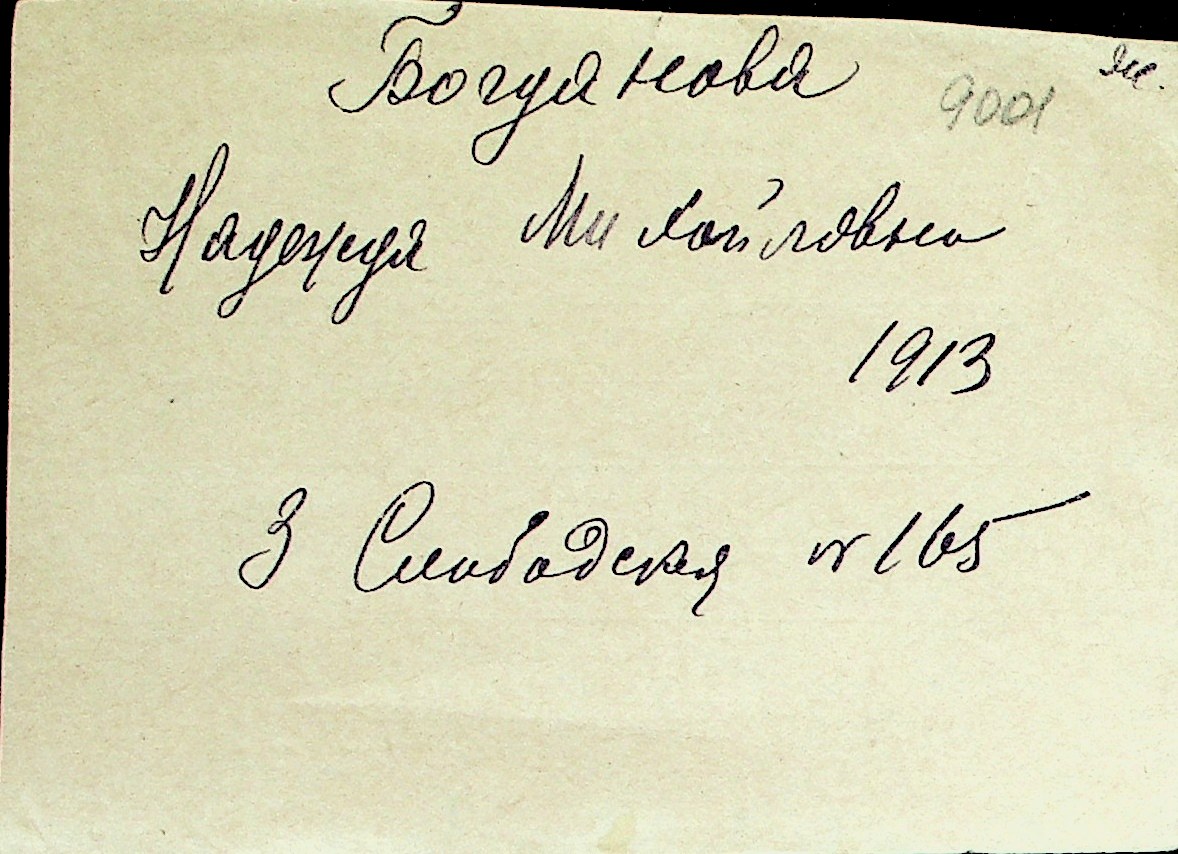 Богданова 9001
Надежда Михайловна
1913
3 Слободская № 165